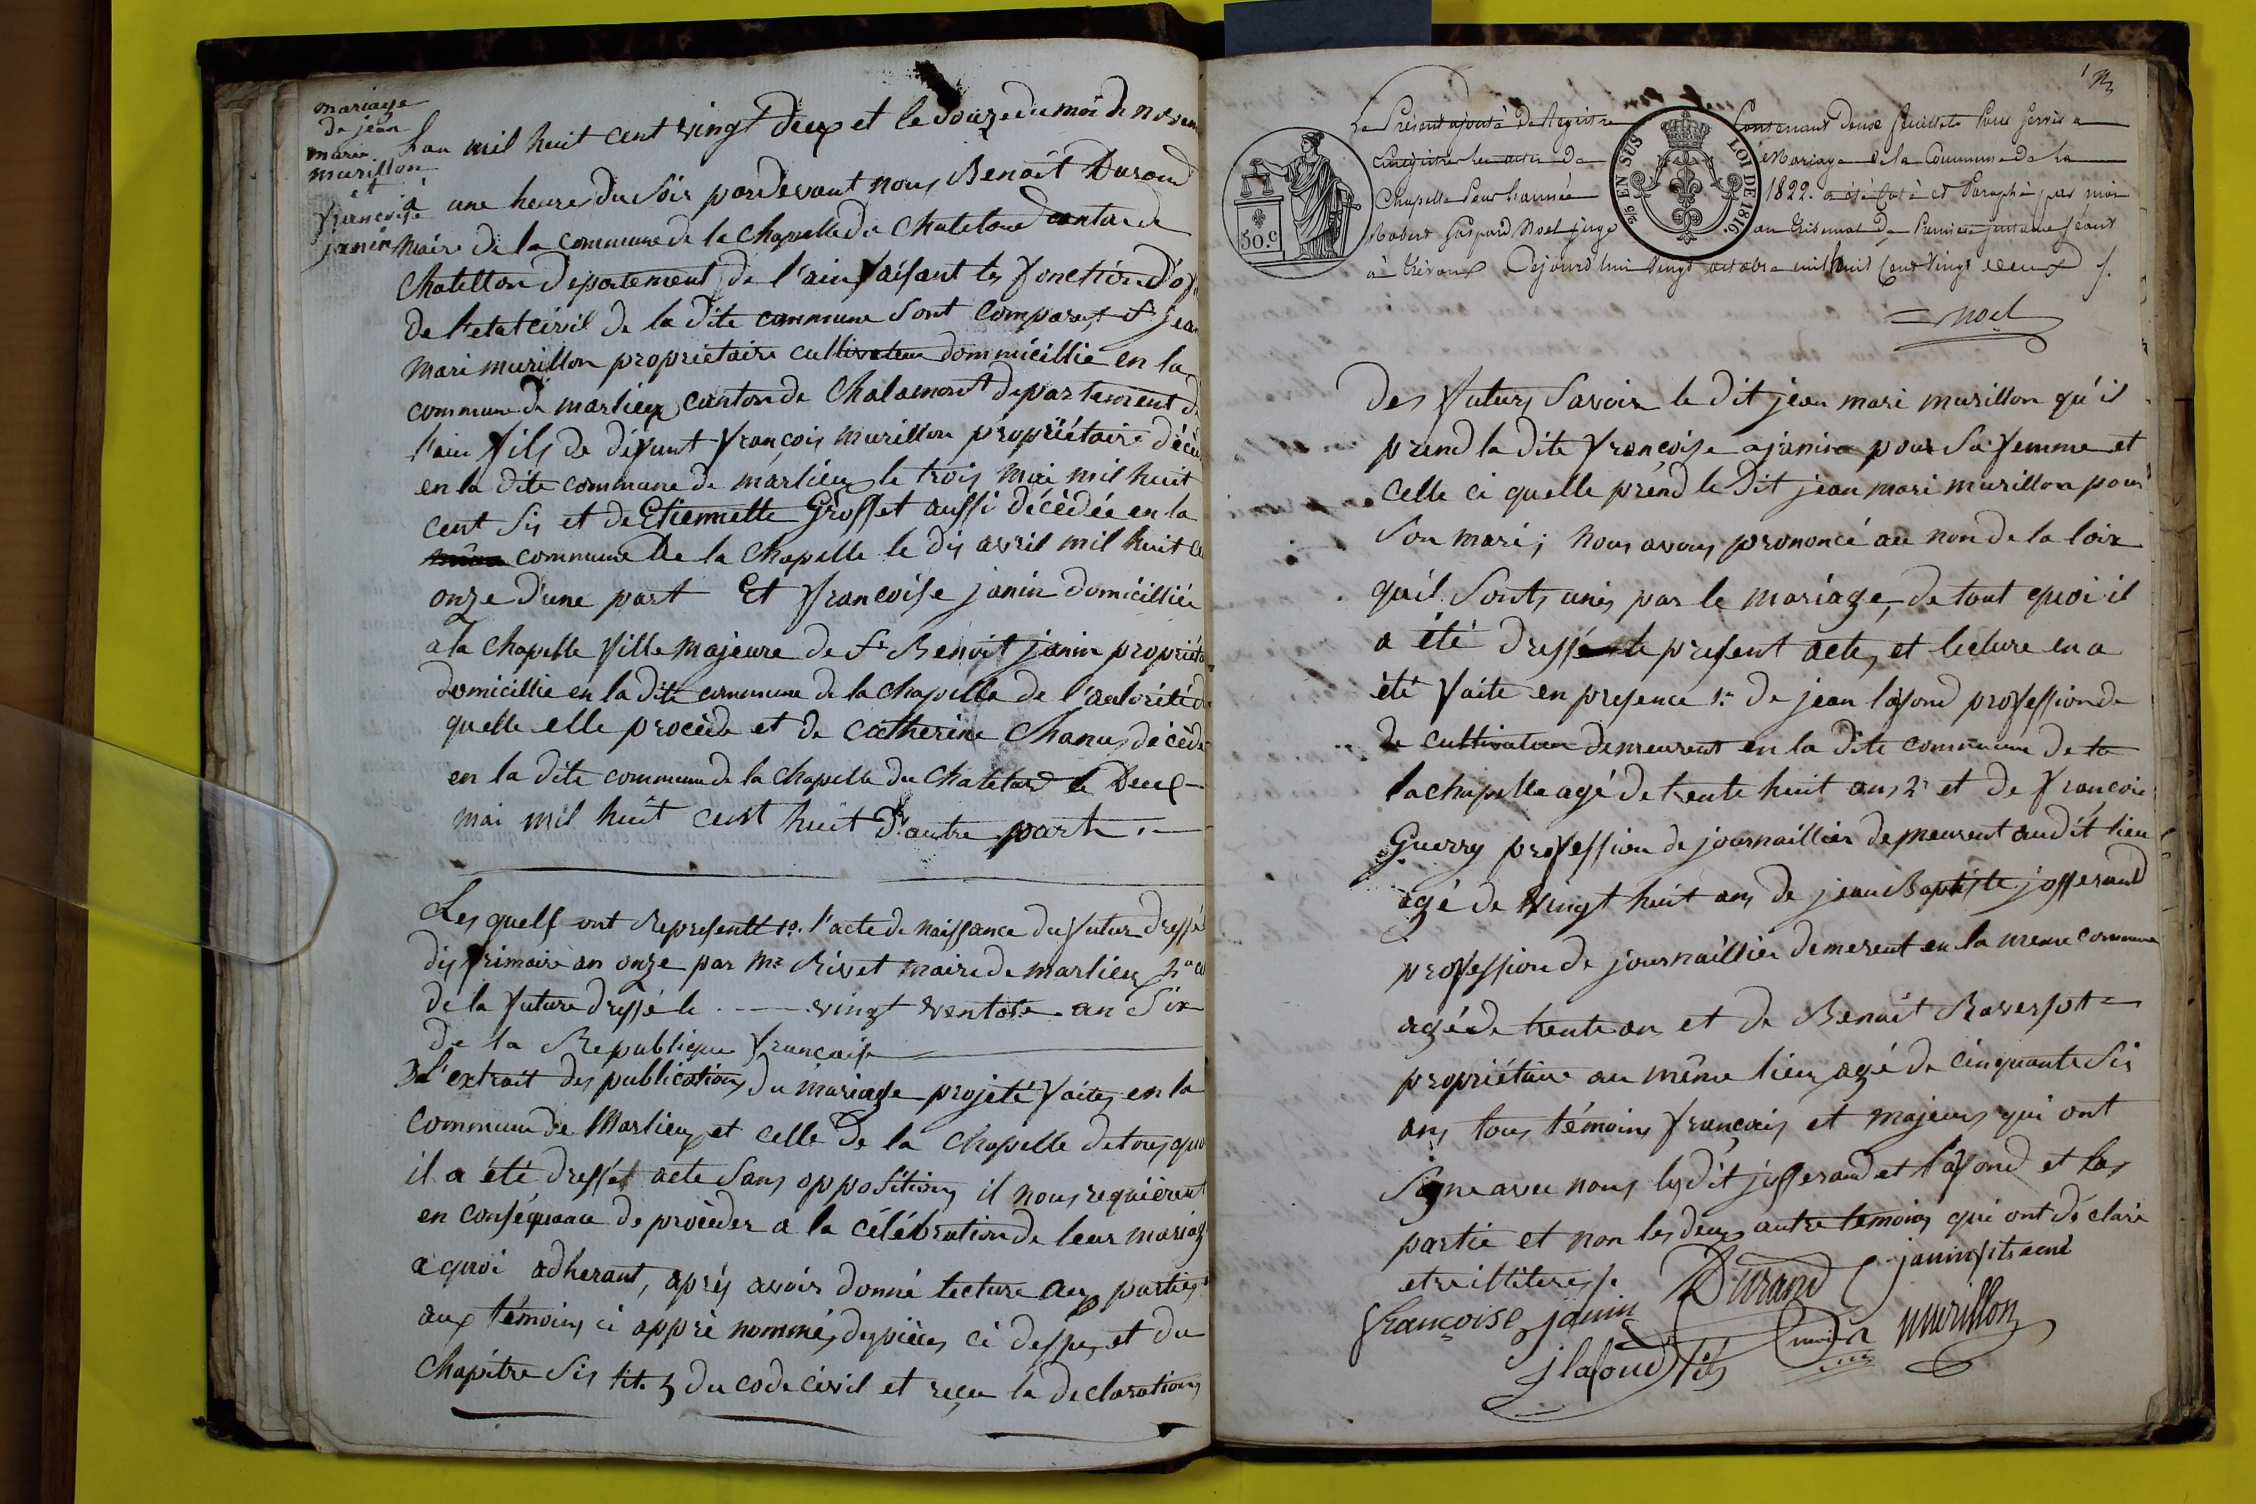 mariage
de jean
marie
murillon
et
francoise
janin
L'an mil huit cent vingt deux et le douze du moi de novem
à une heure du soir pardevant nous Benoit Durand
maire de la commune de la chapelle du Chatelard canton de
chatillon departement de l'ain faisant les fonction d'of
de l'etat civil de la dite commune sont comparut sr jean
mari murillon propriétaire cultivateur dommicillié en la
commune de marlieux canton de Chalamont departement de
l'ain fils de défunt françois murillon propriétaire décéd
en la dite commune de marlieux le trois mai mil huit
cent sis et de Etiennette Grosset aussi décédée en la
commune de la chapelle le dis avril mil huit ce
onze d'une part Et françoise janin domicilliée
a la chapelle fille majeure de sr Benoit janin propriéta
domicillié en la dite commune de la chapelle de l'autorité de
quelle elle procéde et de catherine Chanu décédé
en la dite commune de la chapelle du chatelard le Deux
mai mil huit cent huit d'autre part .
Les quels ont representé 1o. l'acte de naissance du futur dressé
dis frimaire an onze par Mr Rivet maire de marlieux 2o ce
de la future dressé le vingt ventose an Six
de la Republique française
3o l'extrait des publications du mariage projeté faites en la
commune de Marlieux et celle de la chapelle de tous quoi
il a été dressé acte sans oppositions il nous requièrent
en conséquance de procèder a la célébration de leur mariag
a quoi adherant, après avoir donné lecture aux parties
aux témoins ci appré nommés, des pièces ci dessus, et du
chapitre sis tit. 5 du code civil et reçu la declarations
Le Présent ajouté de Registre Contenant deux feuillets Pour Servir a
Enregistrer les actes de Mariage de la Commune de La
Chapelle Pour l'année 1822. a été Coté et Paraphé par moi
Robert Gaspard Noel juge au tribunal de Premiere instance Séant
à Trévoux Cejourd'hui vingt octobre mil huit Cent Vingt deux
Noel
50.C
EN SUS
LOI DE 1816.
des futurs Savoir le dit jean mari murillon qu'il
prend la dite françoise janin pour sa femme et
celle ci quelle prend le dit jean mari murillon pour
son mari; nous avons prononcé au non de la loix
quil sonts unis par le mariage, de tout quoi il
a été dressé le present acte, et lecture en a
été faite en presence 1o. de jean lafond profession de
de cultivateur demeurent en la dite commune de la
lachapelle agé de trente huit ans 2o et de françois
Guerry profession de journaillier demeurent audit lieu
agé de vingt huit ans de jean Baptiste josserand
profession de journaillier demerent en la meme commune
agé de trente an et de Benoit Raversott
propriétaire au même lieu agé de cinquante sis
ans tous témoins françois et majeurs qui ont
signe avec nous lesdit josserand et lafond et las
partie et non les deux autre temoins qui ont déclaré
etre illiteres
Durand
janin
françoise janin
murillon
j lafond